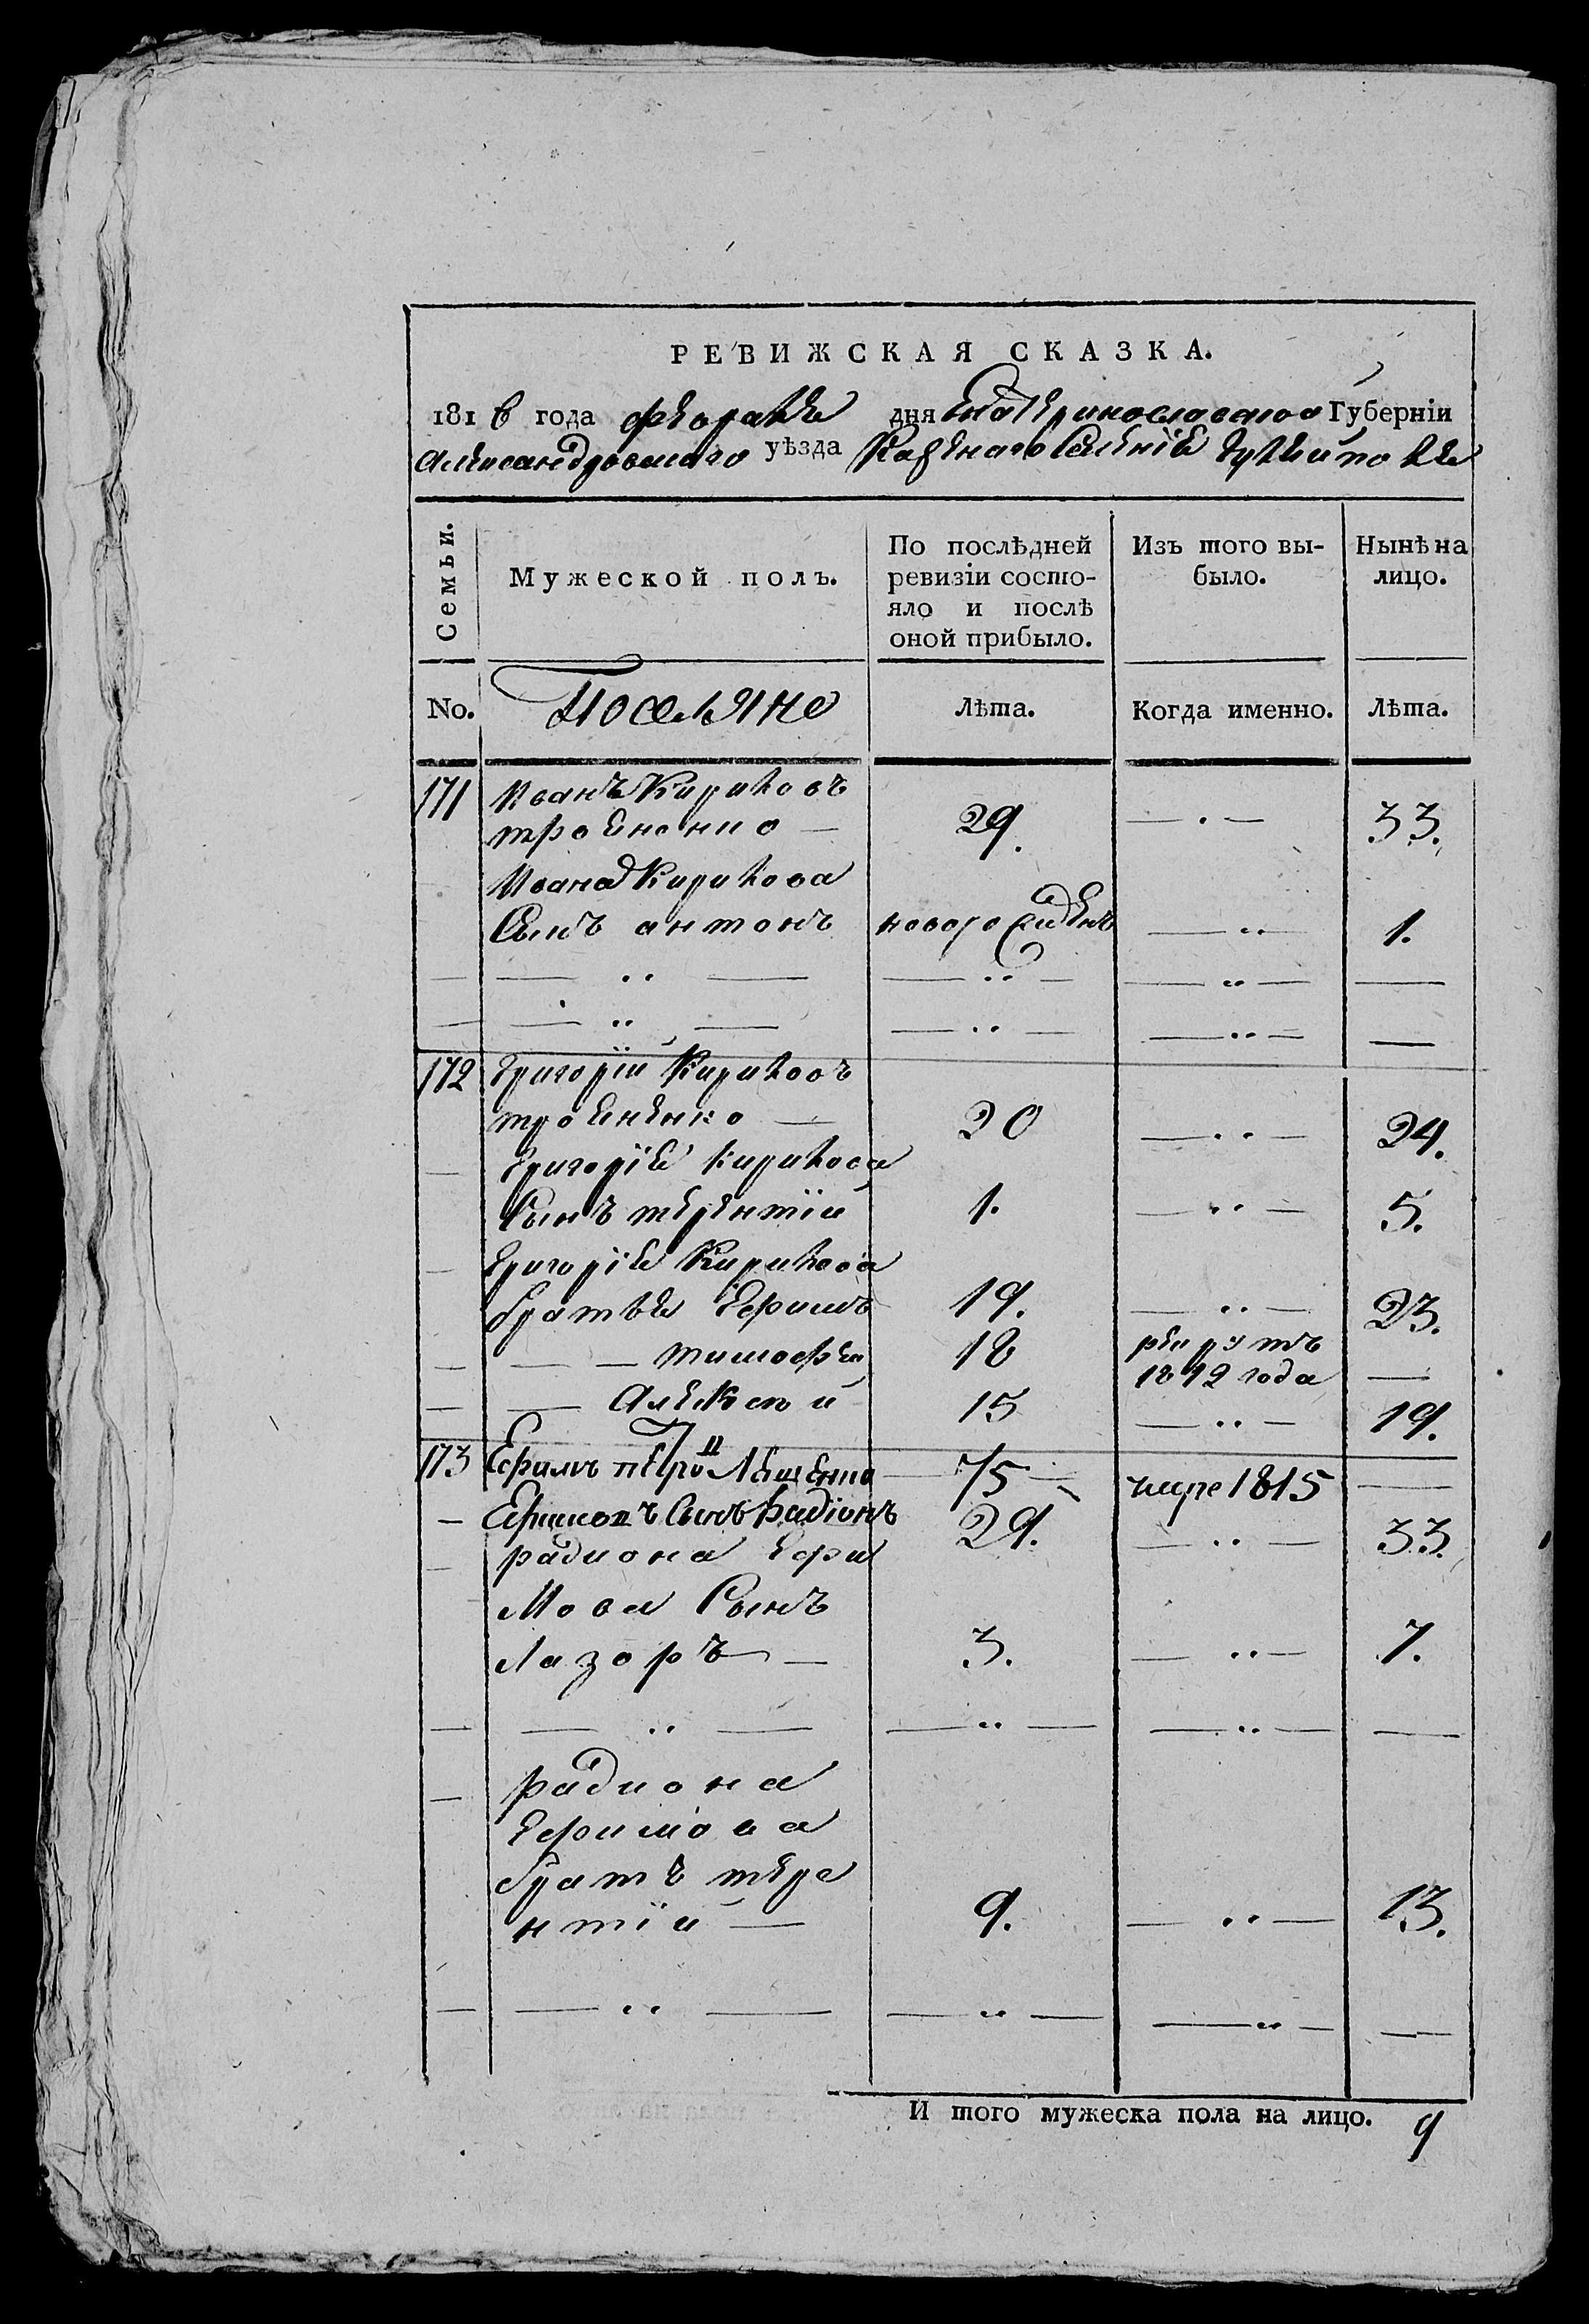 РЕВИЖСКАЯ СКАЗКА.
1816 года февраля дня Екатеринославской Губерніи
Александровскаго уѣзда Казенаго Селенія
Семьи.
Мужеской полъ.
По послѣдней ревизіи состо-
яло и послѣ
оной прибыло.
Изъ того вы-
было.
Нынѣ на
лицо.
No.
Поселяне
Лѣта.
Когда именно.
Лѣта.
171 Иванъ Кириловъ
троененко — 29. — . — 33.
Ивана Кирилова
Сынъ антонъ новорожденъ — .. — 1.
— — .. — — .. — — .. — —
— — .. — — .. — — .. — —
172 Григорій Кириловъ
троененко — 20 — .. — 24.
— Григорія Кирилова
Сынъ терентій 1. — .. — 5.
— Григорія Кирилова
братья Ефимъ 19. — .. — 23.
— — — тимофей 18 рекрутъ
1812 года —
— — Алексей 15 — .. — 19.
173 Ефимъ петро II Лещенко 75 — умре 1815 —
— Ефимовъ Сынъ Радіонъ 29. — .. — 33.
— радиона Ефи
мова Сынъ
Лазоръ — 3. — .. — 7.
— — .. — — .. — — .. — —
— радиона
Ефимова
братъ тере
нтій — 9. — .. — 13.
— — .. — — .. — — .. — —
И того мужеска пола на лицо. 9